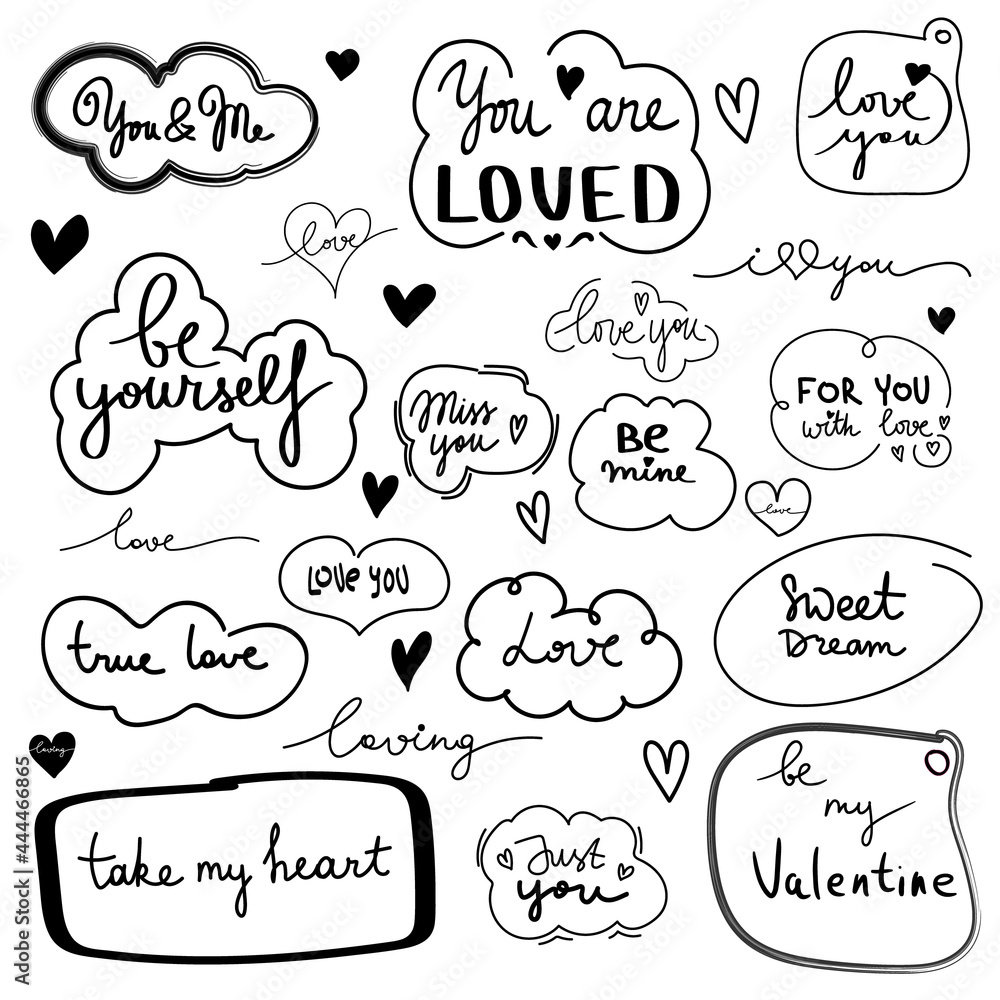 You & Me
You are
LOVED
love
you
love
i you
be
yourself
love you
Miss
you
Be
mine
FOR YOU
with love
love
love
Love you
true love
Love
Sweet
Dream
loving
loving
take my heart
Just
you
be
my
Valentine
Adobe Stock | #444466865